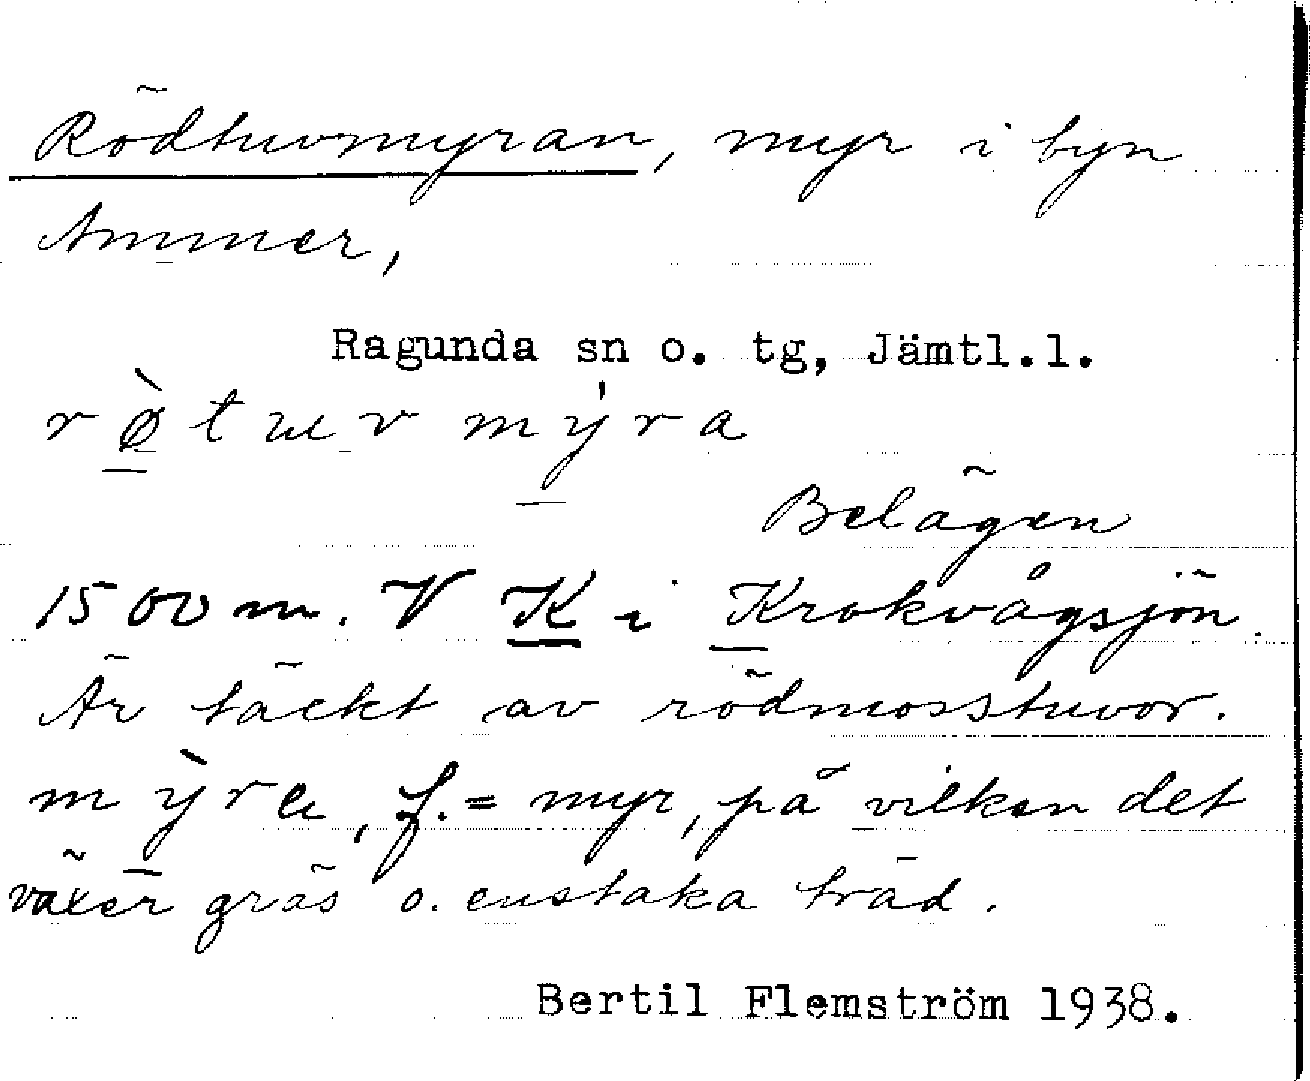 Rödtuvmyran, myr i byn
Ammer,
Ragunda sn o. tg, Jämtl.l.
rø̀tuvmýra
Belägen
1500 m. V K i Krokvågsjön.
Är täckt av rödmosstuvor.
mỳra, f. = myr, på vilken det
växer gräs o. enstaka träd.
Bertil Flemström 1938.